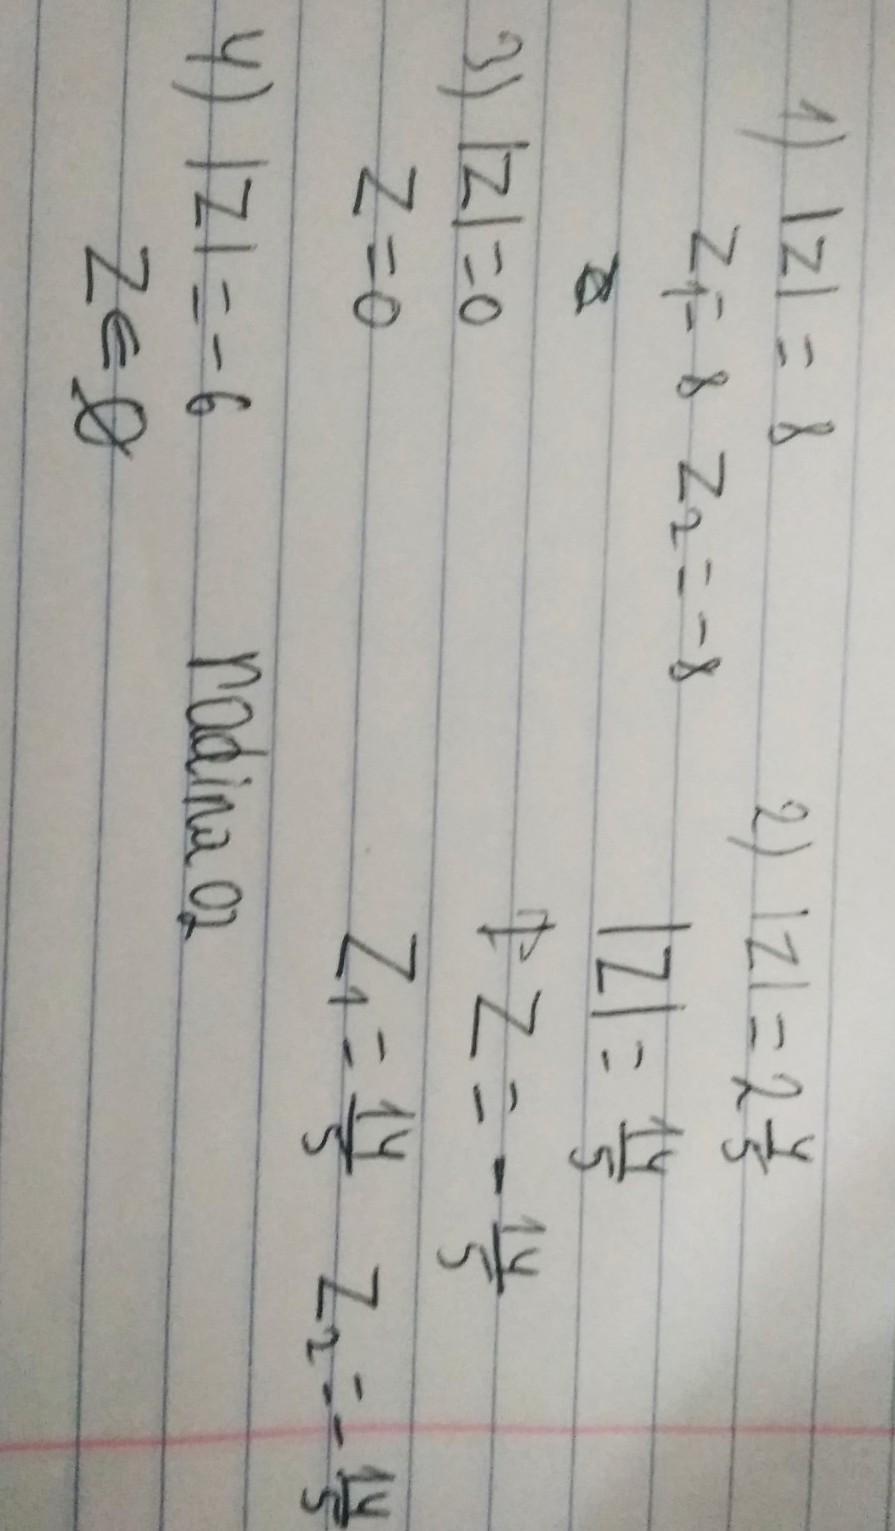 1) |z| = 8
z₁ = 8 z₂ = -8
2) |z| = 2 4/5
|z| = 14/5
z = - 14/5
z₁ = 14/5 z₂ = - 14/5
3) |z| = 0
z = 0
4) |z| = -6
z ∈ ∅
madina02